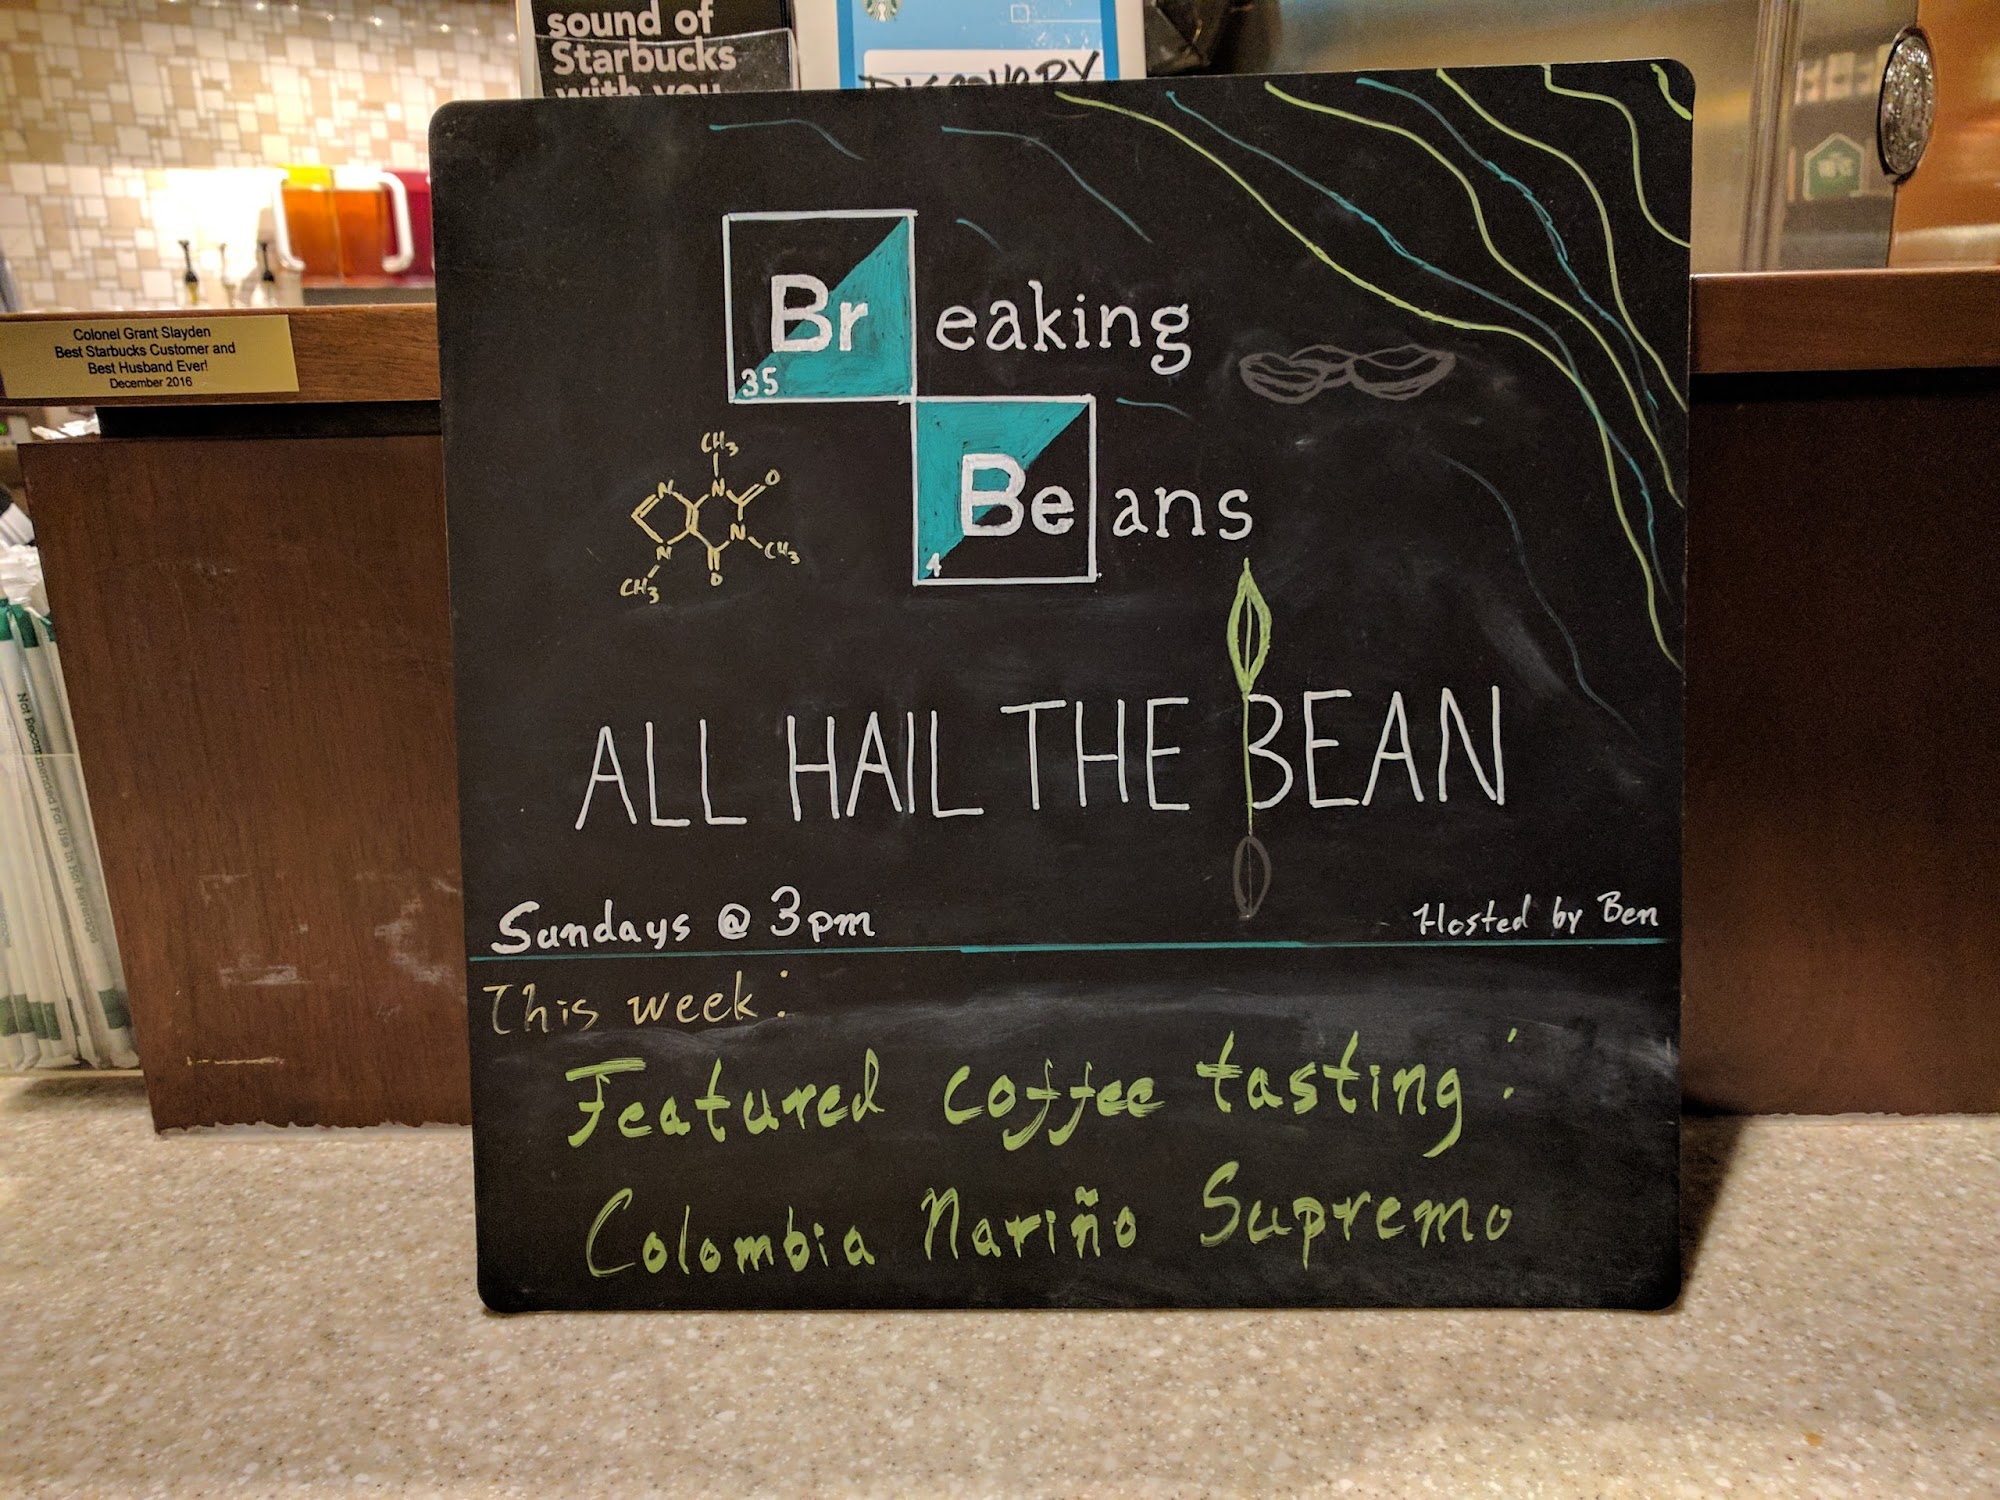 sound of
Starbucks
with you
DISCOVERY
Colonel Grant Slayden
Best Starbucks Customer and
Best Husband Ever!
December 2016
Breaking
35
Beans
4
CH3
N
N
O
N
CH3
N
O
CH3
ALL HAIL THE BEAN
Sundays @ 3pm
Hosted by Ben
This week:
Featured coffee tasting:
Colombia Nariño Supremo
Not Recommended For Use In Hot Beverages